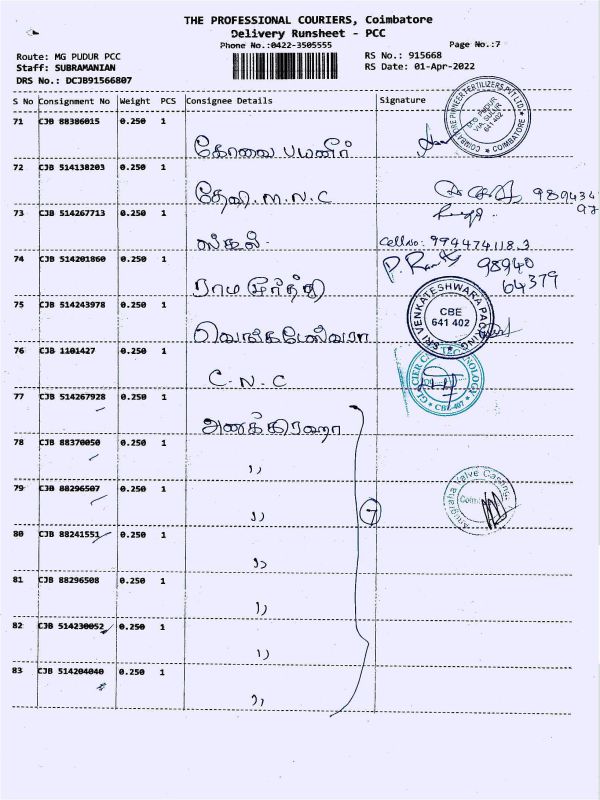 THE PROFESSIONAL COURIERS, Coimbatore
Delivery Runsheet - PCC
Phone No.:0422-3505555 Page No.:7
Route: MG PUDUR PCC RS No.: 915668
Staff: SUBRAMANIAN RS Date: 01-Apr-2022
DRS No.: DCJB91566807
S No Consignment No Weight PCS Consignee Details Signature
71 CJB 88386015 0.250 1
கோவை பயனீர்
COIMBATORE PIONEER FERTILIZERS PVT LTD. COIMBATORE
641 402
72 CJB 514138203 0.250 1
தேவி. M.N.C
73 CJB 514267713 0.250 1
Cell no: 9944741183
74 CJB 514201860 0.250 1
ராமமூர்த்தி
98940
64379
75 CJB 514243978 0.250 1
வெங்கடேஸ்வரா
SRI VENKATESHWARA PACKING
CBE
641 402
76 CJB 1101427 0.250 1
C.N.C
77 CJB 514267928 0.250 1
78 CJB 88370050 0.250 1
"
79 CJB 88296507 0.250 1
"
7
80 CJB 88241551 0.250 1
"
81 CJB 88296508 0.250 1
"
82 CJB 514230052 0.250 1
"
83 CJB 514204040 0.250 1
"